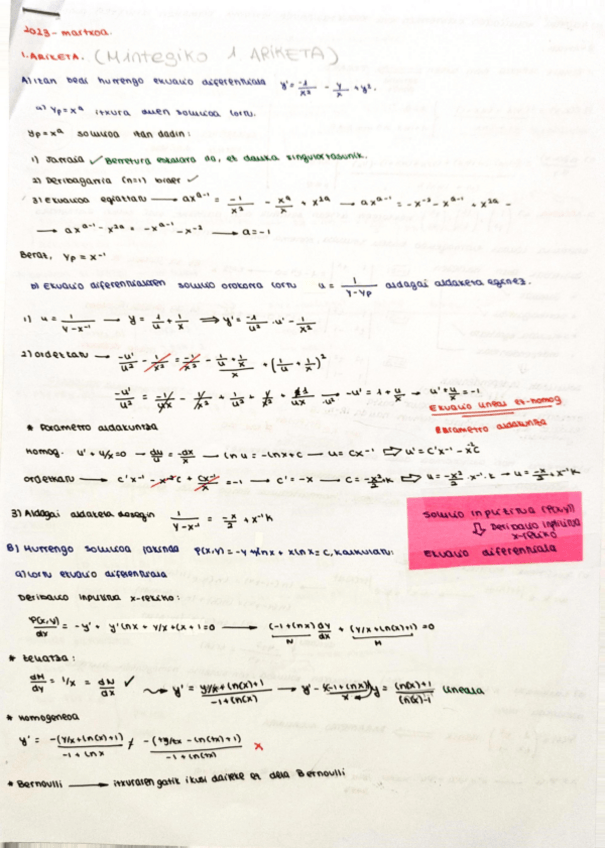 2023 - martxoa.
1. ARIKETA. (Mintegiko 1. ARIKETA)
A) Izan bedi hurrengo ekuazio diferentziala y' = -1/x² - y/x + y².
a) yp = x^a itxura duen soluzioa lortu.
yp = x^a soluzioa izan dadin:
1) Jarraia ✓ Berretura eskuara da, ez dauka singulartasunik.
2) Deribagarria (n=1) ✓
3) Ekuazioa egiaztatu → ax^(a-1) = -1/x² - x^a/x + x^(2a) → ax^(a-1) = -x^-2 - x^(a-1) + x^(2a) -
→ ax^(a-1) - x^(2a) = -x^(a-1) - x^-2 → a = -1
Beraz, yp = x^-1
b) Ekuazio diferentzialaren soluzio orokorra lortu u = 1/(y-yp) aldagai aldaketa eginez.
1) u = 1/(y-x^-1) → y = 1/u + 1/x ⇒ y' = -1/u² · u' - 1/x²
2) Ordezkatu → -u'/u² - 1/x² = -1/x² - (1/u + 1/x)/x + (1/u + 1/x)²
-u' = 1 + u/x → u' + u/x = -1
Ekuazio lineal ez-homog
Parametro aldakuntza
* Parametro aldakuntza
homog. u' + u/x = 0 → du/u = -dx/x → ln u = -lnx + c → u = Cx^-1 ⇨ u' = C'x^-1 - x^-2 C
ordezkatu → C'x^-1 - x^-2 C + Cx^-1/x = -1 → C' = -x → C = -x²/2 + K ⇨ u = -x²/2 · x^-1 · K → u = -x/2 + x^-1 K
3) Aldagai aldaketa desegin 1/(y-x^-1) = -x/2 + x^-1 K
Soluzio inplizitua (P(x,y))
⇩ Deribazio inplizitua x-rekiko
Ekuazio diferentziala
B) Hurrengo soluzioa jakinda P(x,y) = -y + ylnx + xlnx = C, kalkulatu:
a) Lortu ekuazio diferentziala
Deribazio inplizitua x-rekiko:
P(x,y)/dx = -y' + y'lnx + y/x + lx + 1 = 0 → (-1+lnx) dy/dx + (y/x + ln(x)+1) = 0
N M
* Zehatza:
dM/dy = 1/x = dN/dx ✓ y' = (y/x + ln(x)+1)/(-1+ln(x))
lineala
* Homogeneoa
y' = -(y/x + ln(x)+1)/(-1+lnx) ≠ -(ty/tx - ln(tx)+1)/(-1+ln(tx)) ×
* Bernoulli → itxurarengatik ikusi daiteke ez dela Bernoulli